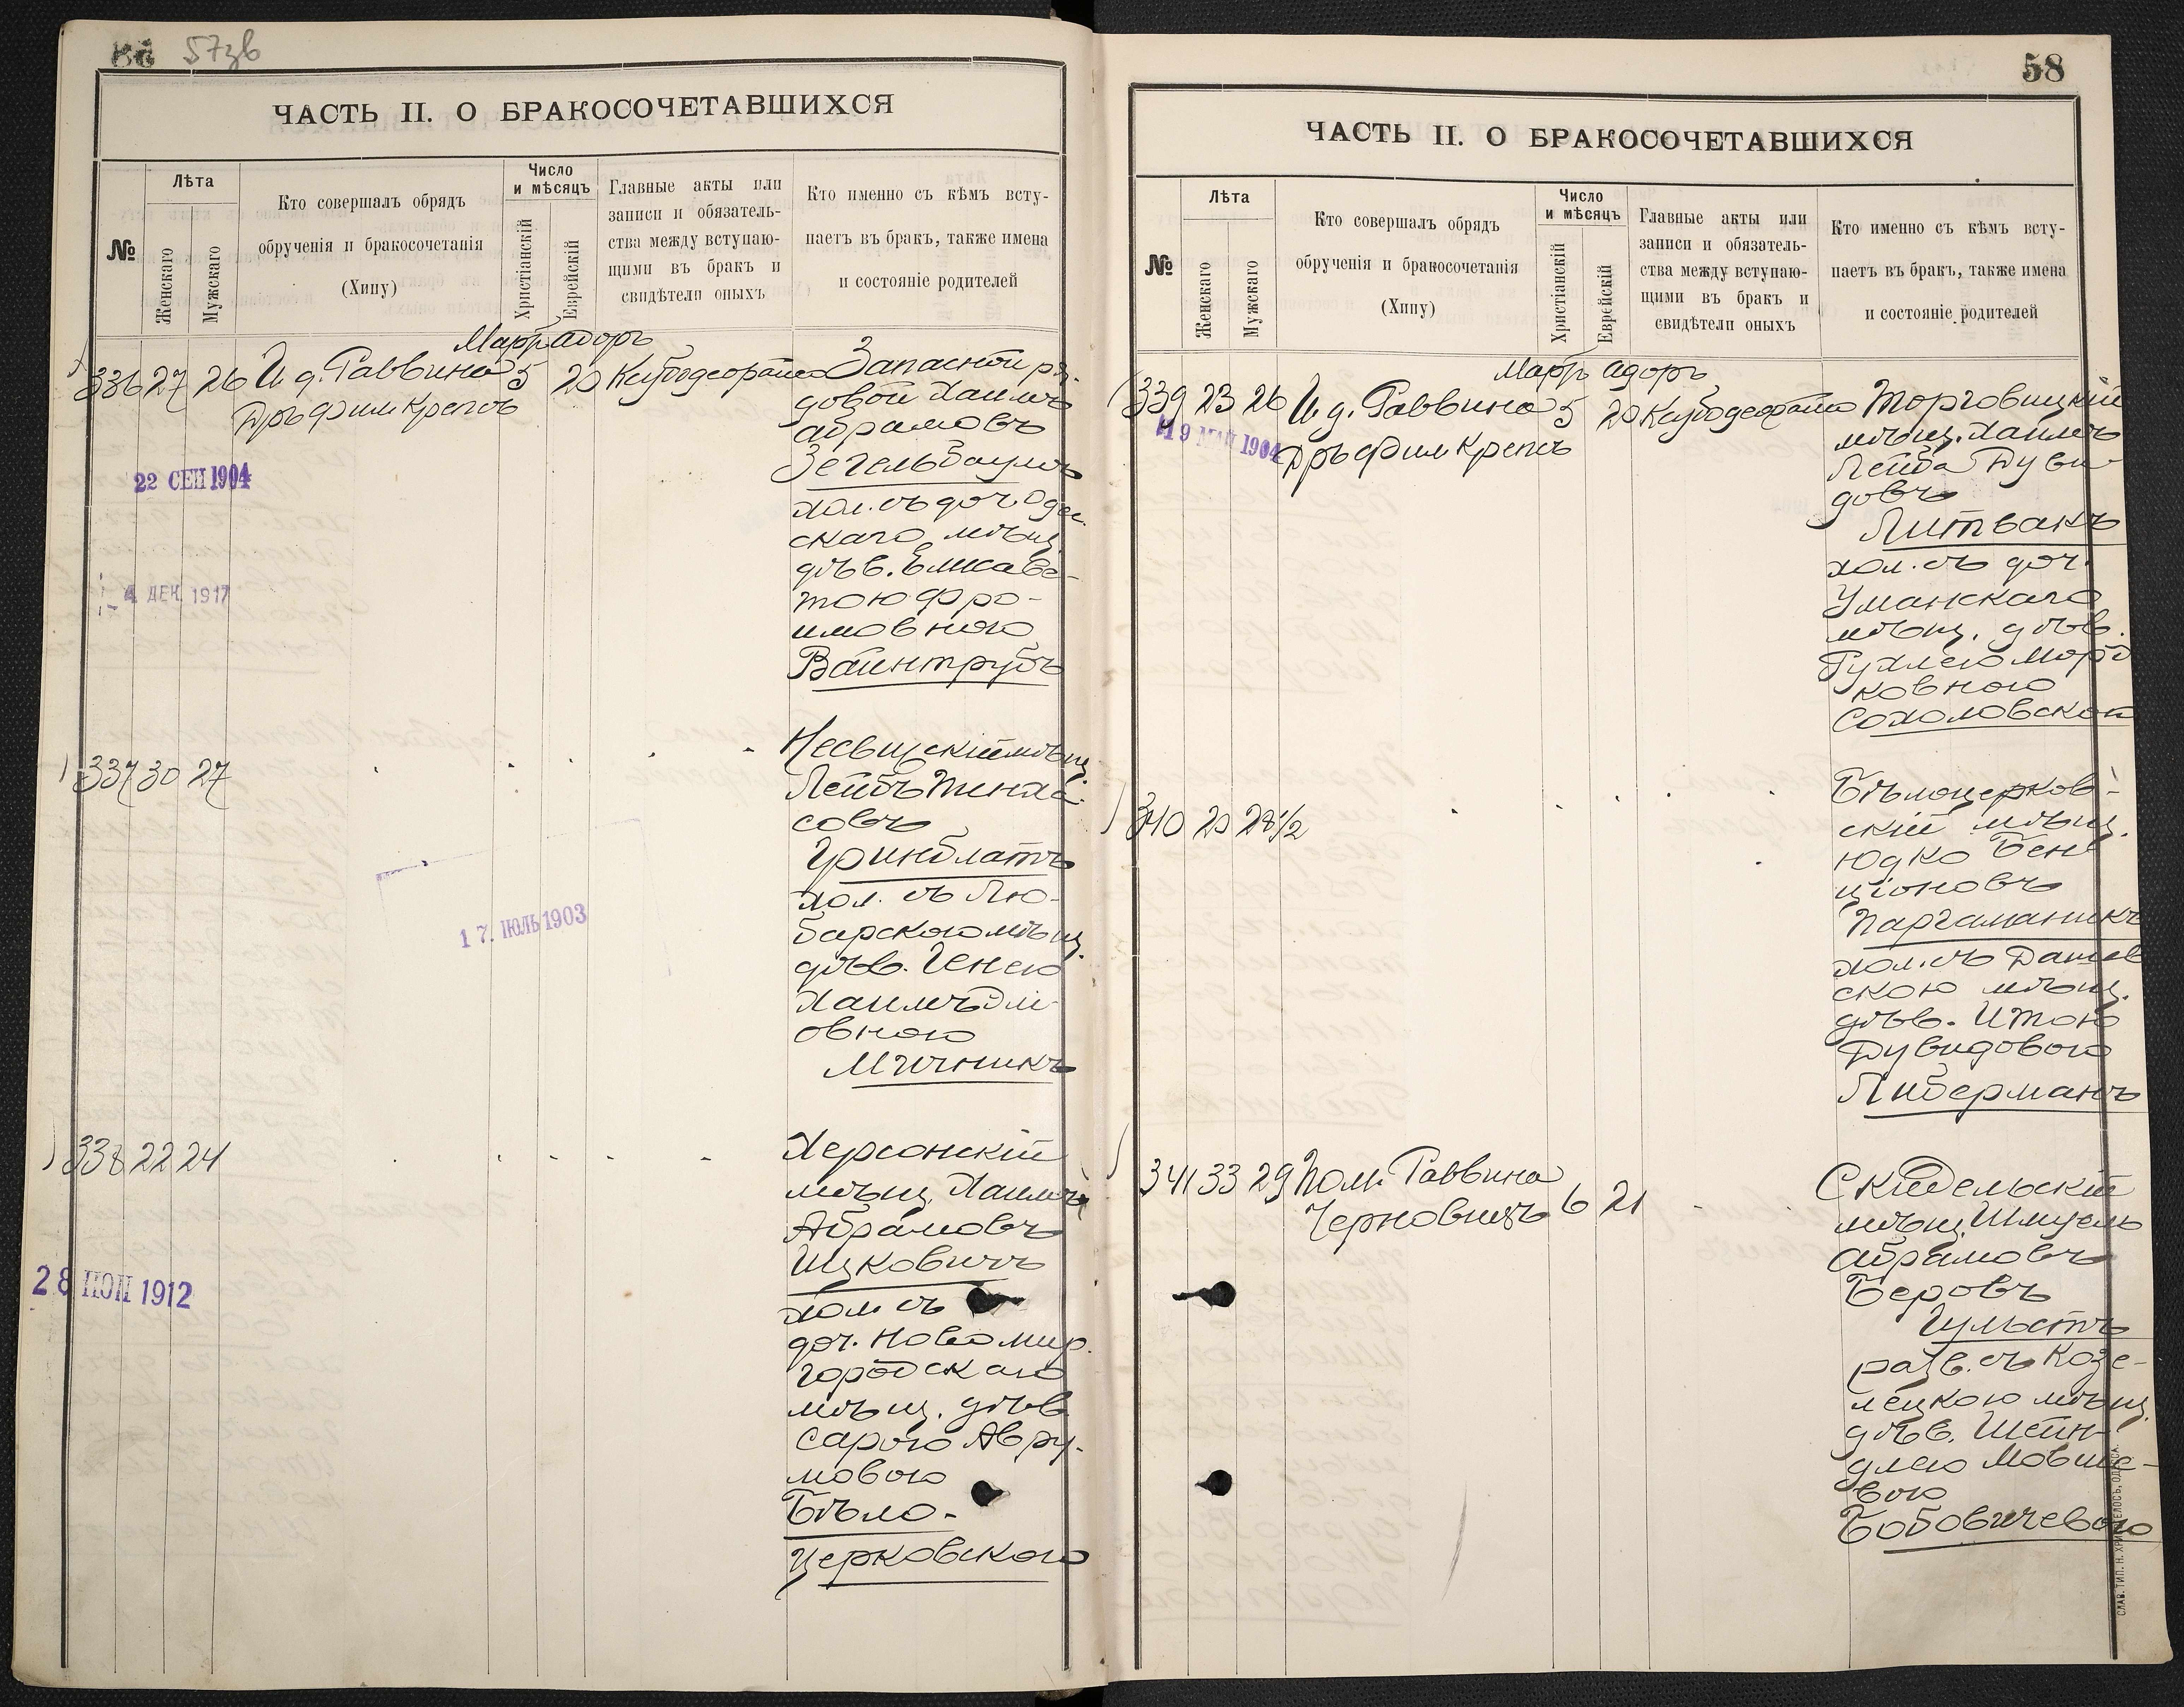 57зв
ЧАСТЬ II. О БРАКОСОЧЕТАВШИХСЯ
№
Лѣта
Женскаго
Мужскаго
Кто совершалъ обрядъ
обрученія и бракосочетанія
(Хипу)
Число
и мѣсяцъ
Христіанскій
Еврейскій
Главные акты или
записи и обязатель-
ства между вступаю-
щими въ бракъ и
свидѣтели оныхъ
Кто именно съ кѣмъ всту-
паетъ въ бракъ, также имена
и состояніе родителей
Мартъ Адоръ
336 27 26 И д. Раввина 5 20
Дръ Фил Крепсъ
22 СЕН 1904
4 ДЕК 1917
Запасной ря-
довой Хаимъ
Абрамовъ
Зегельбаумъ
хол. съ доч. Одес
скаго мѣщ
дѣв. Елисаве-
тою Фро-
имовною
Вайнтрубъ
337 30 27
17. ІЮЛЬ 1903
Несвижскій мѣщ.
Лейбъ Пинха-
совъ
Гринблатъ
хол. съ Лю-
барскою мѣщ.
дѣв. Генею
Хаимъ
овною
Мичникъ
338 22 24
28 1912
Херсонскій
мѣщ. Хаимъ
Абрамовъ
Ицковичъ
хол. съ
доч. Новомир-
городскаго
мѣщ. дѣв
Сарою Авру-
мовою
Бѣло-
церковскою
58
ЧАСТЬ II. О БРАКОСОЧЕТАВШИХСЯ
№
Лѣта
Женскаго
Мужскаго
Кто совершалъ обрядъ
обрученія и бракосочетанія
(Хипу)
Число
и мѣсяцъ
Христіанскій
Еврейскій
Главные акты или
записи и обязатель-
ства между вступаю-
щими въ бракъ и
свидѣтели оныхъ
Кто именно съ кѣмъ всту-
паетъ въ бракъ, также имена
и состояніе родителей
Мартъ Адоръ
339 23 26 И д. Раввина 5 20
Дръ Фил Крепсъ
19 МАЙ 1904
Торговицкій
мѣщ. Хаимъ
Лейба Дуви-
довъ
Литвакъ
хол. съ доч.
Уманскаго
мѣщ. дѣв.
Рухлею Морд
ковною
Сохоловской
340 20 28 1/2
Бѣлоцерков-
скій мѣщ.
Юдко Бен
ціоновъ
Паргаманикъ
хол. съ Дашев
скою мѣщ.
дѣв. Итою
Дувидовою
Либерманъ
341 33 29 Пом. Раввина
Черновицъ 6 21
Скидельскій
мѣщ. Шмуель
Абрамовъ
Беровъ
Гульстъ
разв. съ Козе-
лецкою мѣщ.
дѣв. Шейн-
длею Мовше-
вою
Бобовичевою
СЛАВ. ТИП. Н. ХРИСОГЕЛОСЪ, ОДЕССА.